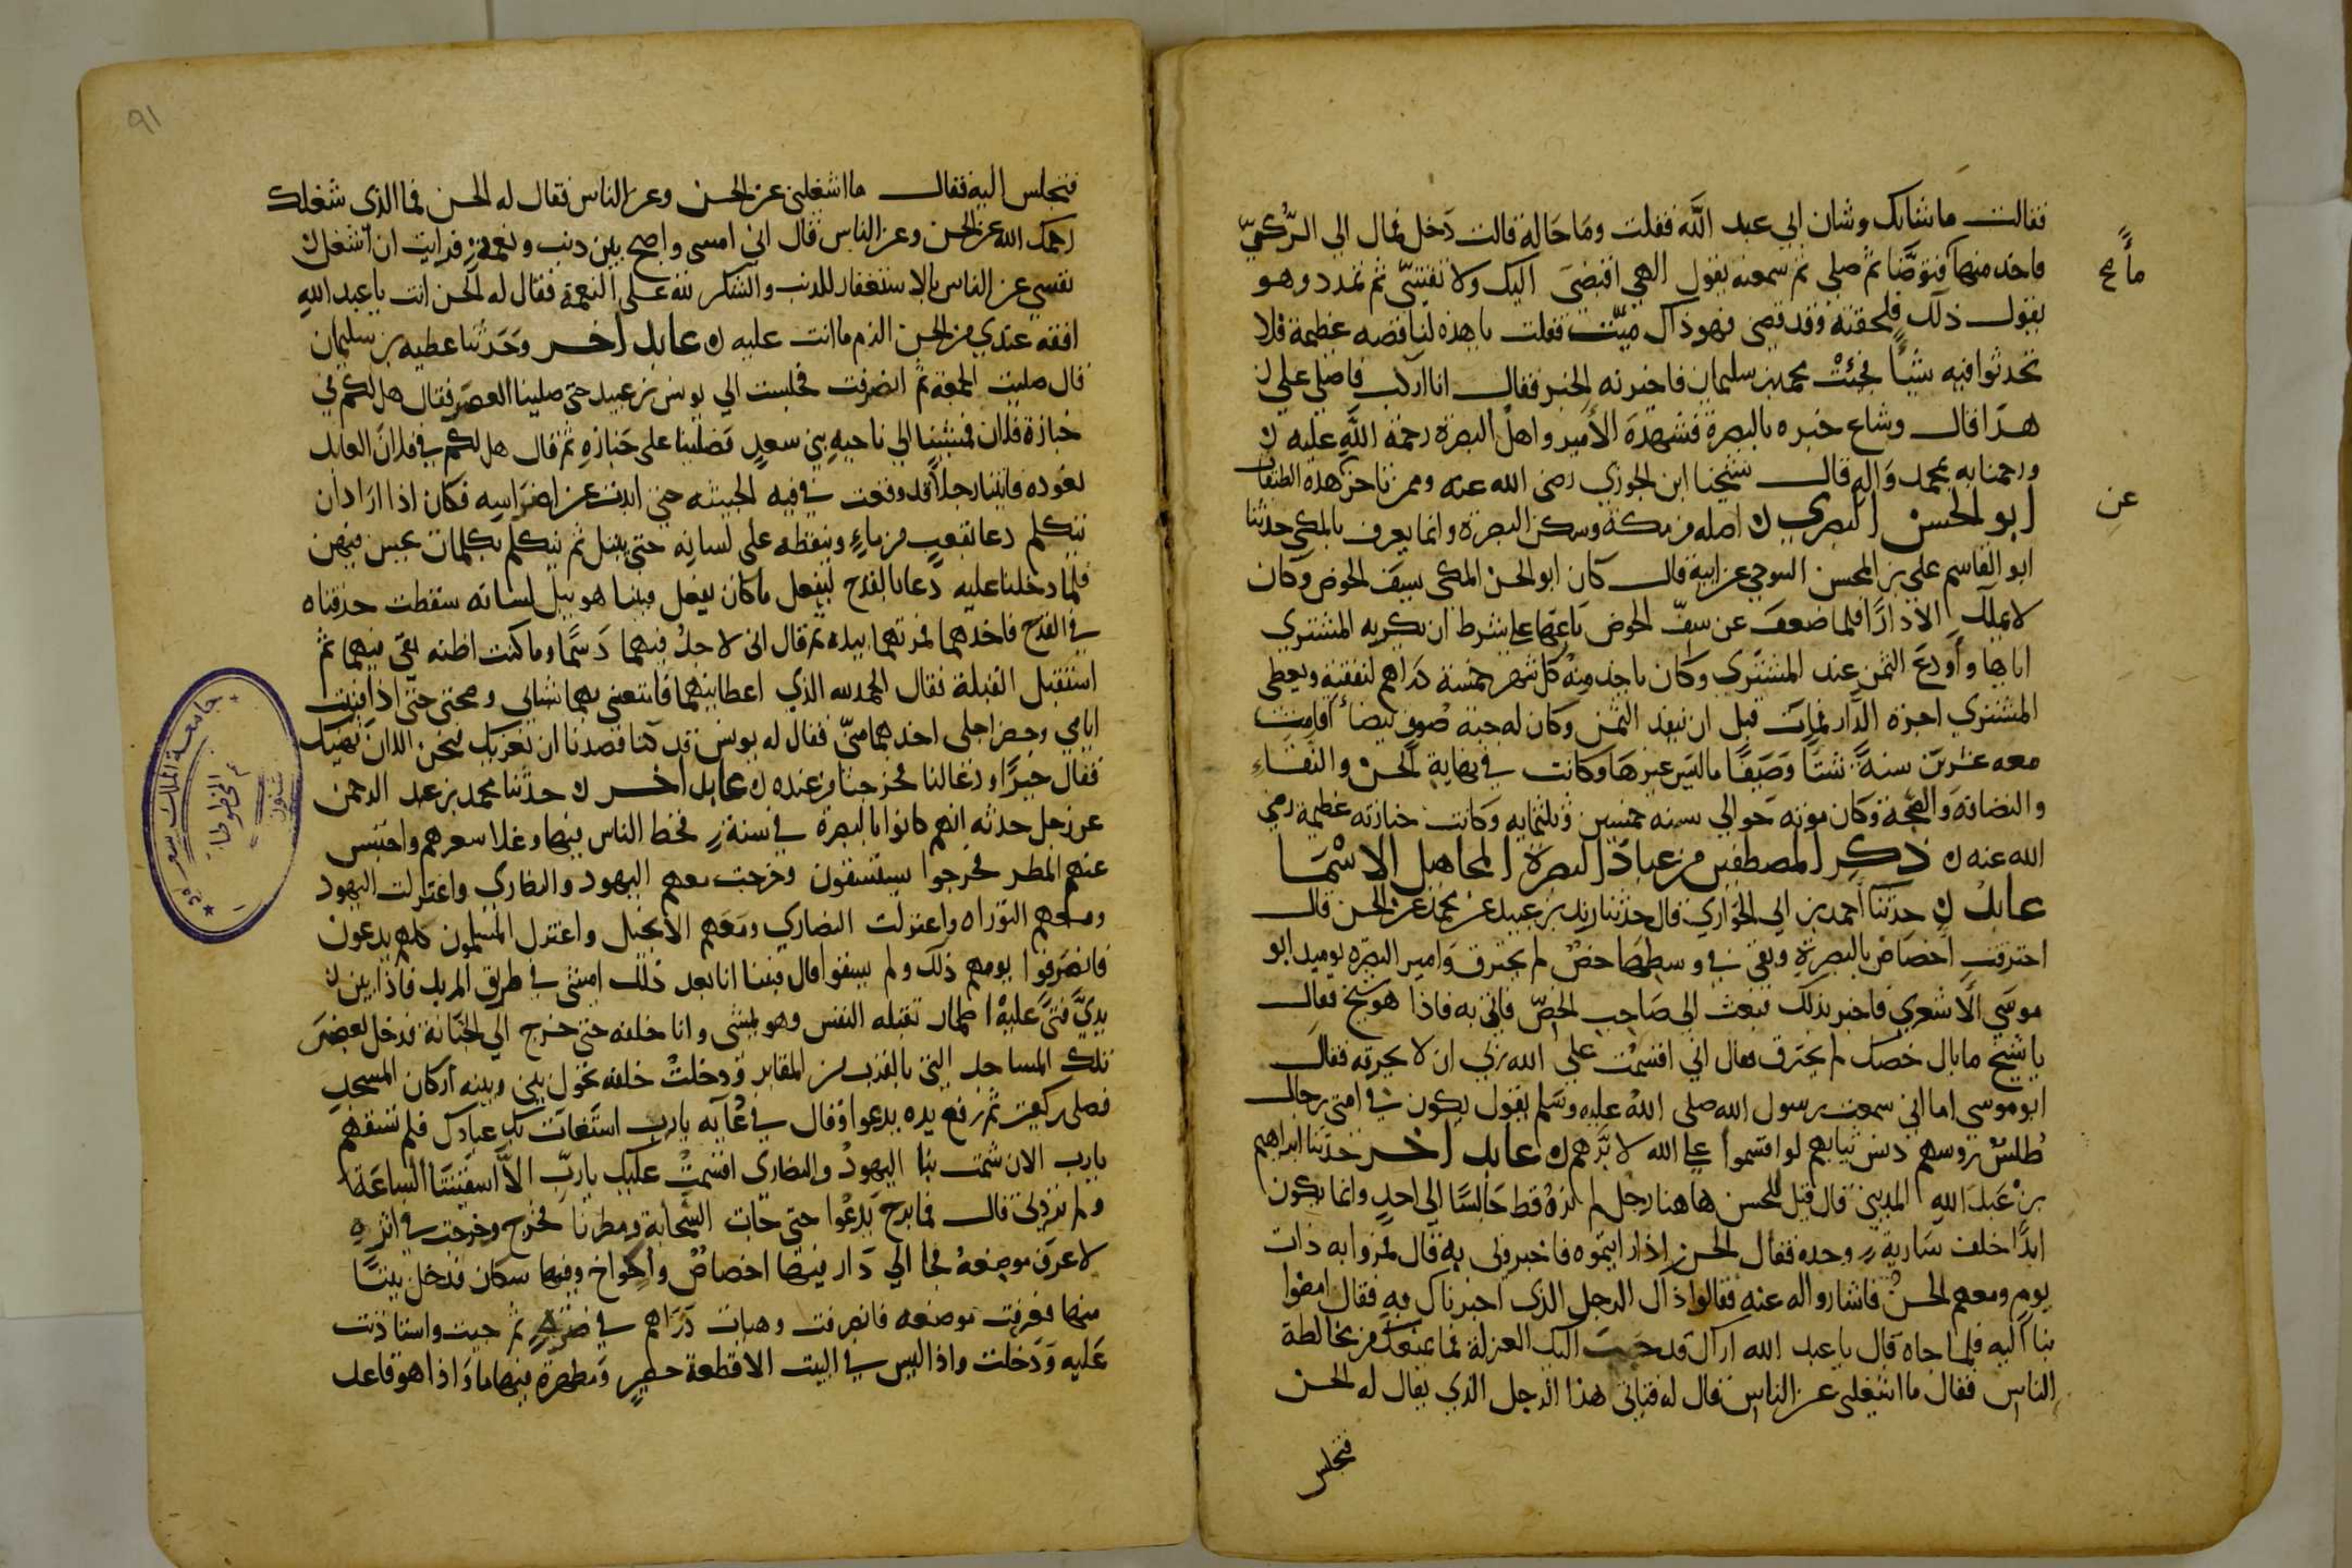 فقالت ما شانك وشان ابي عبد الله فقلت وما حاله قالت دخل فمال الي الركي
ماء صح
فاخذ منها فتوضا ثم صلى ثم سمعته يقول الهي اقبضني اليك ولا تفتني ثم تمدد وهو
يقول ذلك فلحقته وقد قضى فهو ذاك ميت فقلت يا هذه لنا قصه عظيمة فلا
تحدثوا فيه شيا فجئت محمد بن سليمان فاخبرته الخبر فقال انا اركب فاصلي على
هذا قال وشاع خبره بالبصرة فشهده الامير واهل البصرة رحمة الله عليه
ورحمنا به بمحمد واله قال شيخنا ابن الجوزي رضي الله عنه وممن تاخر عن هذه الطبقات
عن
ابو الحسن البصري اصله من مكة وسكن البصرة وانما يعرف بالمكي حدثنا
ابو القاسم علي بن المحسن التنوخي عن ابيه قال كان ابو الحسن المكي يسف الخوص وكان
لا يملك الا دارا فلما ضعف عن سف الخوص باعها على شرط ان يكريه المشتري
اياها واودع الثمن عند المشتري وكان ياخذ منه كل شهر خمسة دراهم لنفقته ويعطي
المشتري اجرة الدار فمات قبل ان ينفد الثمن وكان له جبة صوف بيضاء اقامت
معه عشرين سنة شتا وصيفا ما لبس غيرها وكانت في نهاية الحسن والنقاء
والنضافة والصحة وكان موته حوالي سنه خمسين وثلثمايه وكانت جنازته عظيمة رضي
الله عنه ذكر المصطفين من عباد البصرة المجاهيل الاسما
عابد حدثنا احمد بن ابي الحواري قال حدثنا زيد بن عبيد عن محمد عن الحسن قال
احترقت اخصاص بالبصرة وبقي في وسطها خص لم يحترق وامير البصره يوميد ابو
موسى الاشعري فاخبر بذلك فبعث الى صاحب الخص فاتي به فاذا هو شيخ فقال
يا شيخ ما بال خصك لم يحترق فقال اني اقسمت على الله ربي ان لا يحرقه فقال
ابو موسى اما اني سمعت رسول الله صلى الله عليه وسلم يقول يكون في امتي رجال
طلس روسهم دنس ثيابهم لو اقسموا على الله لابرهم عابد اخر حدثنا ابراهيم
بن عبد الله المديني قال قيل للحسن هاهنا رجل لم نره قط جالسا الى احد وانما يكون
ابدا خلف سارية وحده فقال الحسن اذا رايتموه فاخبروني به قال فمروا به ذات
يوم ومعهم الحسن فاشاروا له عنه فقالوا ذاك الرجل الذي اخبرناك به فقال امضوا
بنا اليه فلما جاه قال يا عبد الله اراك قد حببت اليك العزلة فما يمنعك من مخالطة
الناس فقال ما اشغلني عن الناس قال له فتاتي هذا الرجل الذي يقال له الحسن
فتجلس
٩١
فتجلس اليه فقال ما اشغلني عن الحسن وعن الناس فقال له الحسن فما الذي شغلك
رحمك الله عن الحسن وعن الناس قال اني امسي واصبح بين دنب ونعمة فرايت ان اشغل
نفسي عن الناس بالاستغفار للدنب والشكر لله على النعمة فقال له الحسن انت يا عبد الله
افقه عندي من الحسن الزم ما انت عليه عابد اخر وحدثنا عطيه بن سليمان
قال صليت الجمعة ثم انصرفت فجلست الى يونس بن عبيد حتى صلينا العصر فقال هل لكم في
جنازة فلان فمشينا الى ناحية بني سعد فصلينا على جنازه ثم قال هل لكم في فلان العابد
نعوده فاتينا رجلا قد وقعت في فيه الخبيثه حتى ابدت عن اضراسه فكان اذا اراد ان
يتكلم دعا بقعب من ماء وبقطه على لسانه حتى يبتل ثم يتكلم بكلمات يحسن فيهن
فلما دخلنا عليه دعا بالقدح ليفعل ما كان يفعل فبينا هو يبل لسانه سقطت حدقتاه
في القدح فاخذهما فمرتهما بيده ثم قال اني لاجد فيهما دسما وما كنت اظنه بقي فيهما ثم
استقبل القبلة فقال الحمد لله الذي اعطانيهما فامتعني بهما شبابي وصحتي حتى اذا فنيت
ايامي وحضر اجلي اخذهما مني فقال له يونس قد كنا قصدنا ان نعزيك فنحن الان نهنيك
فقال خيرا ودعا لنا فخرجنا من عنده عابد اخر حدثنا محمد بن عبد الرحمن
عن رجل حدثه انهم كانوا بالبصرة في سنة قحط الناس فيها وغلا سعرهم واحتبس
عنهم المطر فخرجوا يستسقون وخرجت معهم اليهود والنصارى واعتزلت اليهود
ومعهم التوراه واعتزلت النصارى ومعهم الانجيل واعتزل المسلمون كلهم يدعون
فانصرفوا يومهم ذلك ولم يسقوا قال فبينا انا بعد ذلك امشي في طريق المربد فاذا بين
يدي فتى عليه اطمار تقتله النفس وهو يمشي وانا خلفه حتى خرج الى الجبانة فدخل بعض
تلك المساجد التي بالقرب من المقابر ودخلت خلفه تحول بيني وبينه اركان المسجد
فصلى ركعتين ثم رفع يده يدعوا وقال في دعائه يا رب استغاث بك عبادك فلم تسقهم
يا رب الان شمت بنا اليهود والنصارى اقسمت عليك يا رب الا اسقيتنا الساعة
ولم تردني قال فما برح يدعوا حتى جات السحابة ومطرنا فخرج وخرجت في اثره
لاعرف موضعه فجا الى دار فيها اخصاص واكواخ وفيها سكان فدخل بيتا
منها فعرفت موضعه فانصرفت وهيات دراهم في صرة ثم جيت واستاذنت
عليه ودخلت واذا ليس في البيت الا قطعة حصير ومطهرة فيها ما واذا هو قاعد
جامعة الملك سعود
المخطوطات